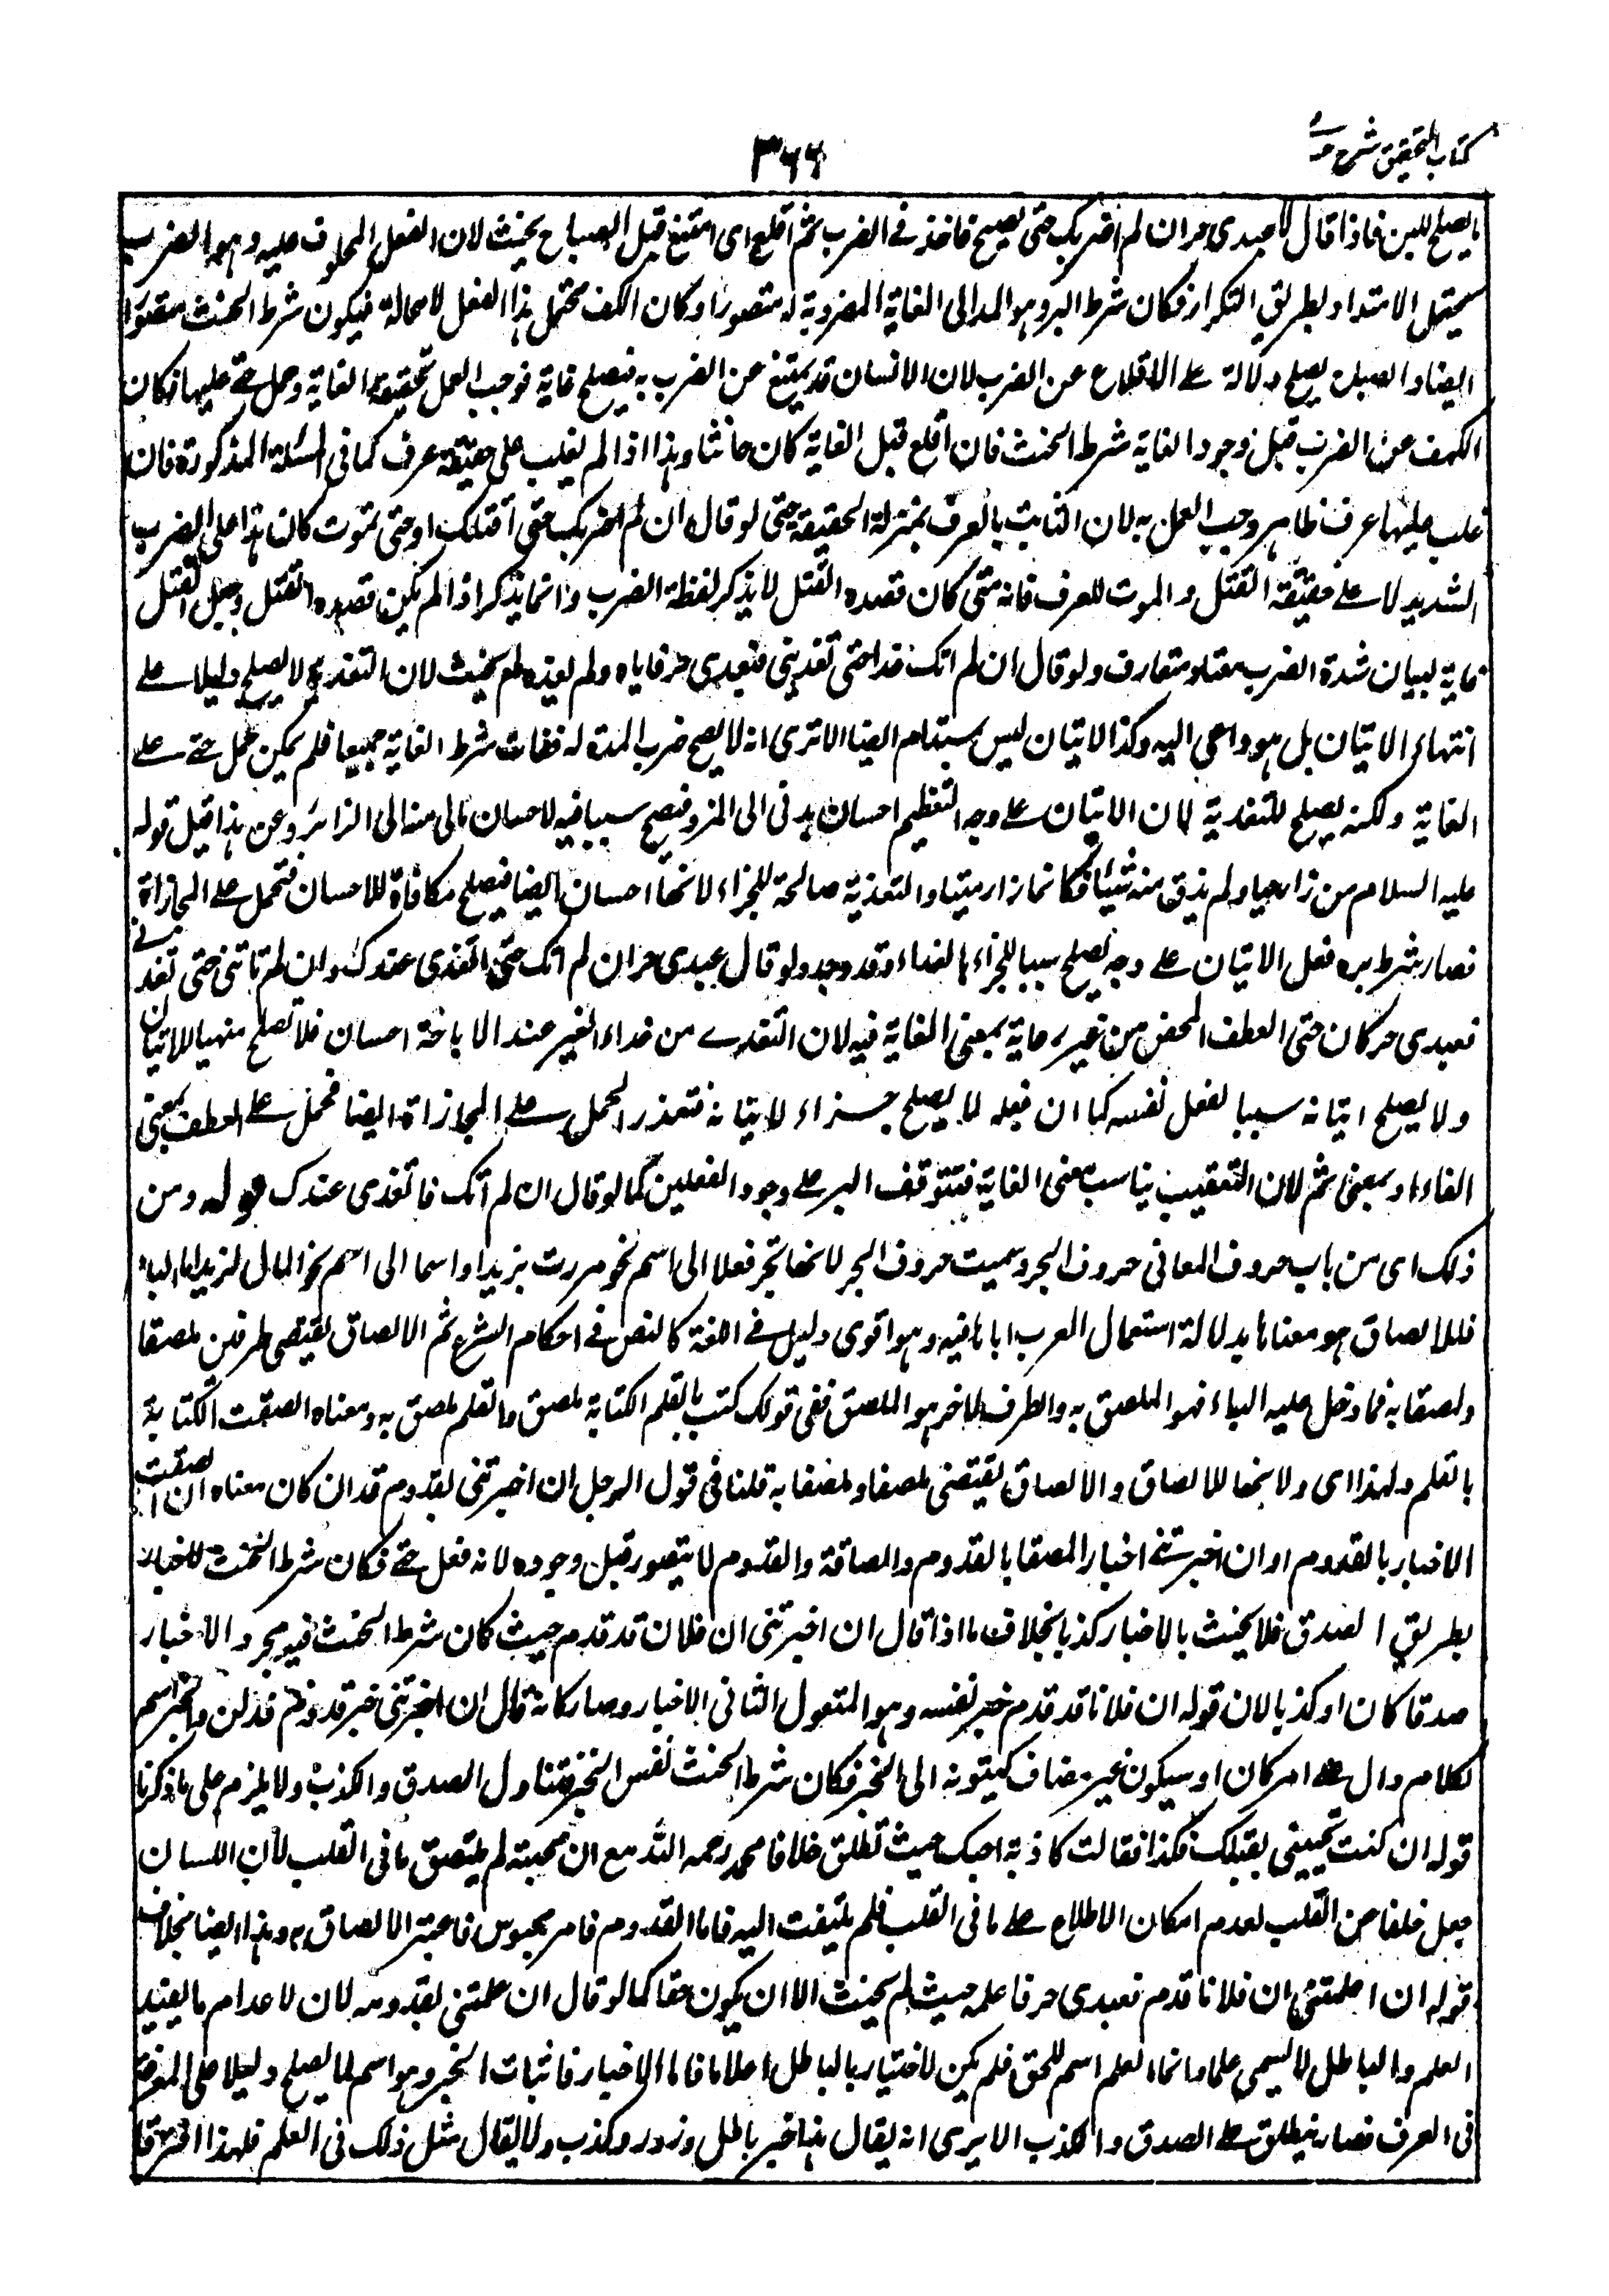 كتاب التحقيق شرح
٣٦٦
ما يصلح للبن فاذا قال لا عبدى حر ان لم اضربك حتى يصيح فاخذ فى الضرب ثم اقلع اى امتنع قبل الصباح يحنث لان الفعل المحلوف عليه وهو الضرب
يحتمل الامتداد بطريق التكرار فكان شرط البر وهو المد الى الغاية المضروبة له متصورا وكان الكف محتمل هذا الفعل لا محالة فيكون شرط الحنث متصورا
ايضا و الصباح يصلح دلالة على الاقلاع عن الضرب لان الانسان قد يمتنع عن الضرب به فيصلح غاية فوجب العمل بحقيقة الغاية وحمل حتى عليها فكان
الكف عن الضرب قبل وجود الغاية شرط الحنث فان اقلع قبل الغاية كان حانثا وهذا اذا لم يغلب على حقيقة عرف كما فى المسئلة المذكورة فان
غلب عليها عرف ظاهر وجب العمل به لان الثابت بالعرف بمنزلة الحقيقة حتى لو قال ان لم اضربك حتى اقتلك او حتى تموت كان هذا على الضرب
الشديد لا على حقيقة القتل و الموت للعرف فانه متى كان قصده القتل لا يذكر لفظة الضرب وانما يذكر اذا لم يكن قصده القتل وجعل القتل
غاية لبيان شدة الضرب معتاد متعارف ولو قال ان لم اتك غدا حتى تغدينى فعبدى حر فاتاه ولم يغده لم يحنث لان التغدية لا يصلح دليلا على
انتهاء الاتيان بل هو داعى اليه وكذا الاتيان ليس بمستدام ايضا الا ترى انه لا يصح ضرب المدة له ففات شرط الغاية جميعا فلم يمكن حمل حتى على
الغاية ولكنه يصلح للتغدية لان الاتيان على وجه التعظيم احسان بدنى الى المزور فيصح سببا فيه لاحسان مالى منه الى الزائر وعن هذا قيل قوله
عليه السلام من زار حيا ولم يذق منه شيئا فكانما زار ميتا والتغذية صالحة للجزاء لانها احسان ايضا فيصلح مكافاة للاحسان فتحمل على المجازاة
فصار شرط بره فعل الاتيان على وجه يصلح سببا للجزاء بالغداء وقد وجد ولو قال عبدى حر ان لم اتك حتى اتغدى عندك وان لم تاتنى حتى تغدى
فعبدى حر كان حتى العطف المحض من غير رعاية بمعنى الغاية فيه لان التغدى من غداء الغير عند الاباحة احسان فلا تصلح منهيا للاتيان
ولا يصلح اتيانه سببا لفعل نفسه كما ان فعله لا يصلح جزاء لاتيانه فتعذر الحمل على المجازاة ايضا فحمل على العطف بمعنى
الفاء او بمعنى ثم لان التعقيب يناسب معنى الغاية فيتوقف البر على وجود الفعلين كما لو قال ان لم اتك فاتغدى عندك قوله ومن
ذلك اى من باب حروف المعانى حروف الجر وسميت حروف الجر لانها تجر فعلا الى اسم نحو مررت بزيد او اسما الى اسم نحو المال لزيد اما الباء
فللالصاق هو معناها بدلالة استعمال العرب اياها فيه وهو اقوى دليل فى اللغة كالنص فى احكام الشرع ثم الالصاق يقتضى طرفين ملصقا
وملصقا به فما دخل عليه الباء فهو الملصق به والطرف الاخر هو الملصق ففى قولك كتبت بالقلم الكتابة ملصق والقلم ملصق به ومعناه الصقت الكتابة
بالقلم ولهذا اى ولانها للالصاق والالصاق يقتضى ملصقا وملصقا به قلنا فى قول الرجل ان اخبرتنى بقدوم فلان كان معناه ان الصقت
الاخبار بالقدوم او ان اخبرتنى اخبارا ملصقا بالقدوم والصاقه والقدوم لا يتصور قبل وجوده لانه فعل حتى فكان شرط الحنث للاخبار
بطريق الصدق فلا يحنث بالاخبار كذبا بخلاف ما اذا قال ان اخبرتنى ان فلان قد قدم حيث كان شرط الحنث فيه مجرد الاخبار
صدقا كان او كذبا لان قوله ان فلانا قد قدم خبر نفسه وهو المفعول الثانى الاخبار وصار كانه قال ان اخبرتنى خبر قدوم فلان والخبر اسم
لكلام دال على امر كان او سيكون غير مضاف كينونته الى الخبر فكان شرط الحنث نفس الخبر فتناول الصدق والكذب ولا يلزم على ما ذكرنا
قوله ان كنت تحبينى بقلبك فكذا فقالت كاذبة احبك حيث تطلق خلافا لمحمد رحمه الله مع ان محبته لم يلتصق ما فى القلب لان اللسان
جعل خلفا عن القلب لعدم امكان الاطلاع على ما فى القلب فلم يلتفت اليه فاما القدوم فامر محسوس فاعتبر الالصاق به وهذا ايضا بخلاف
قوله ان اعلمتنى ان فلانا قدم فعبدى حر فاعلمه حيث لم يحنث الا ان يكون حقا كما لو قال ان علمتنى بقدومه لان الاعلام ما يفيد
العلم والباطل لا يسمى علما وانما العلم اسم للحق فلم يكن الاخبار بالباطل اعلاما فاما الاخبار فاثبات الخبر وهو اسم لما يصلح دليلا على المعرفة
فى العرف فصار ينطلق على الصدق والكذب الا يرى انه يقال هذا خبر باطل وزور وكذب ولا يقال مثل ذلك فى العلم فلهذا افترقا